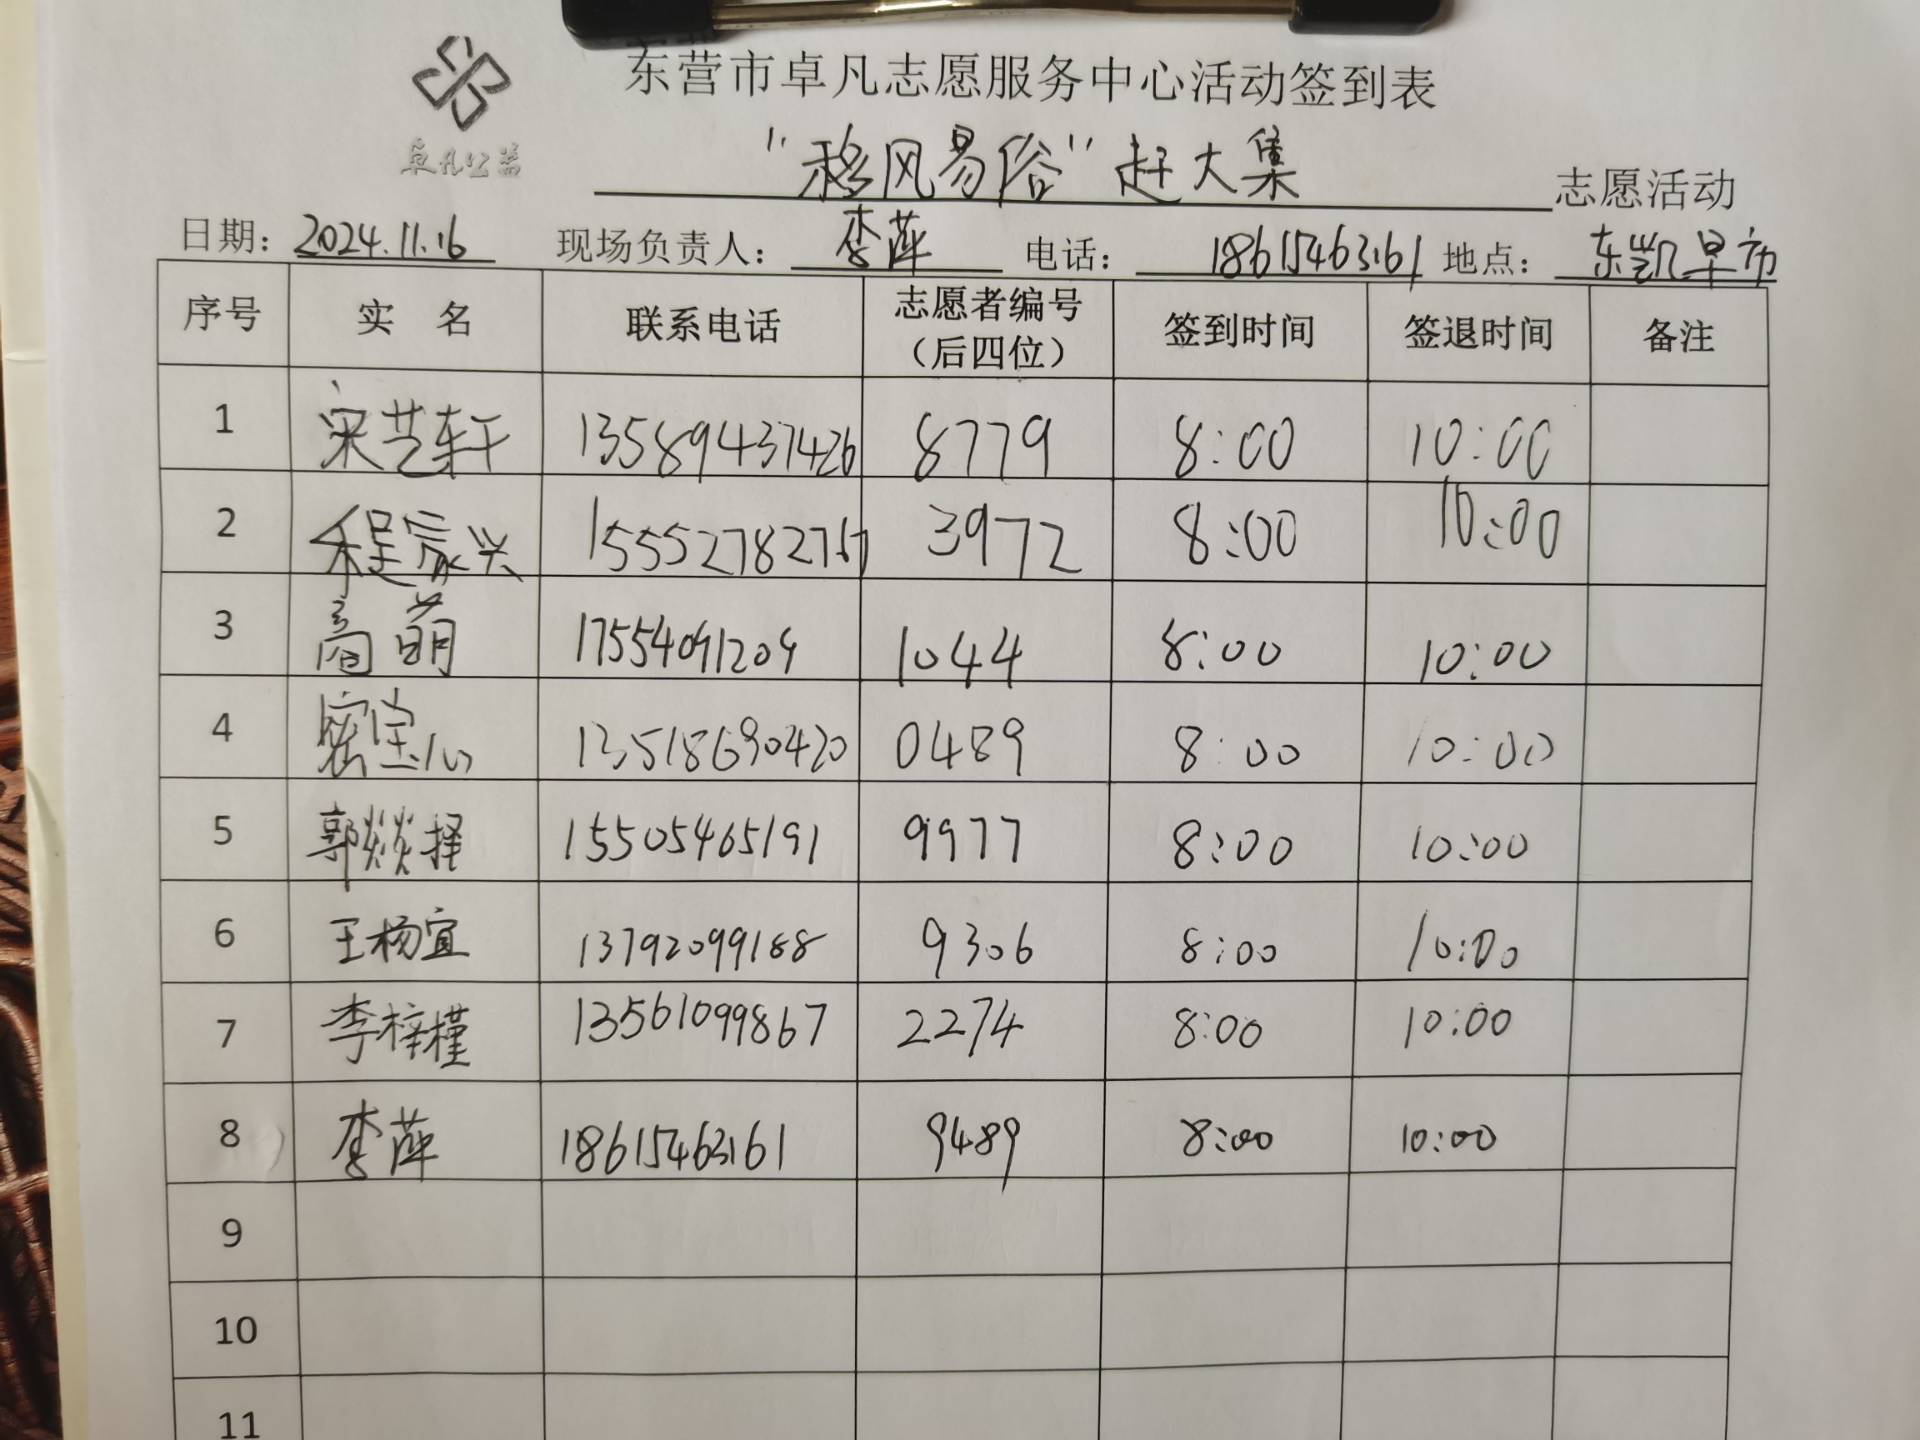 东营市卓凡志愿服务中心活动签到表
卓凡公益
"移风易俗"赶大集 志愿活动
日期: 2024.11.16 现场负责人: 李萍 电话: 18615463161 地点: 东凯早市
序号 实 名 联系电话 志愿者编号（后四位） 签到时间 签退时间 备注
1 宋艺轩 13589437426 8779 8:00 10:00
2 程家兴 15552782767 3972 8:00 10:00
3 高萌 17554091209 1044 8:00 10:00
4 密宝 13518690420 0489 8:00 10:00
5 郭燚择 15505465191 9977 8:00 10:00
6 王杨宜 13792099188 9306 8:00 10:00
7 李梓槿 13561099867 2274 8:00 10:00
8 李萍 18615463161 9489 8:00 10:00
9
10
11